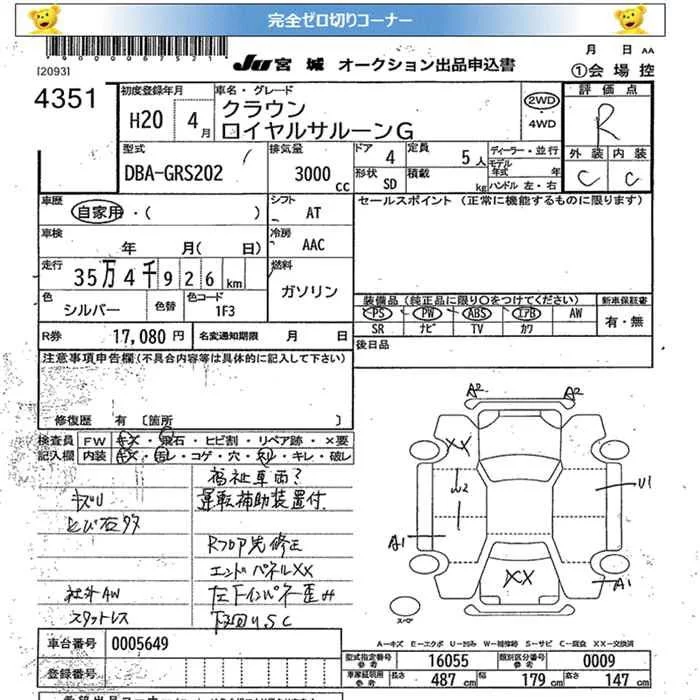 完全ゼロ切りコーナー
[2093]
JU 宮城 オークション出品申込書
月 日 AA
①会場控
4351
初度登録年月
H20 4月
車名・グレード
クラウン
ロイヤルサルーンG
2WD
・
4WD
評価点
R
外装 内装
C C
型式
DBA-GRS202
排気量
3000 cc
ドア 4
定員 5人
形状 SD
積載 kg
ディーラー・並行
モデル年式 年
ハンドル 左・右
車歴
自家用・( )
シフト AT
車検
年 月( 日)
冷房 AAC
走行
35万4千926km
燃料
ガソリン
色
シルバー
色替
色コード
1F3
セールスポイント (正常に機能するものに限ります)
装備品 (純正品に限り○をつけてください)
新車保証書
PS PW ABS エアB AW
SR ナビ TV カワ
有・無
R券 17,080円
名変通知期限 月 日
後日品
注意事項申告欄(不具合内容等は具体的に記入して下さい)
修復歴 有 〔箇所 〕
検査員 FW キズ・飛石・ヒビ割・リペア跡・×要
記入欄 内装 キズ・汚レ・コゲ・穴・スリ・キレ・破レ
福祉車両?
キズU
運転補助装置付
とび石多
Rフロア先修正
エンドパネルXX
社外AW
左下インパネ歪み
スタットレス
下回りU,S,C
A2 A2
XX
W2
U1
A1
XX
A1
スペア
A-キズ E-エクボ U-凹み W-補修跡 S-サビ C-腐食 XX-交換済
車台番号 0005649
登録番号
型式指定番号 参考 16055
類別区分番号 参考 0009
車庫証明用 参考 長さ 487cm 幅 179cm 高さ 147cm